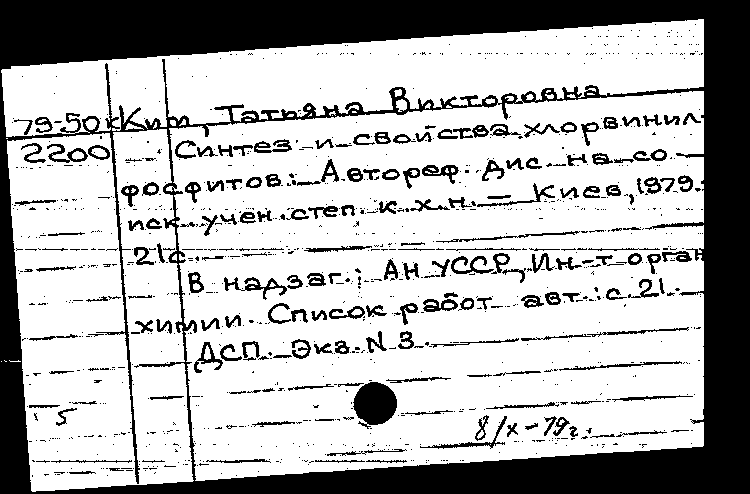 79-50к Ким, Татьяна Викторовна.
2200 Синтез и свойства хлорвинил-
фосфитов: Автореф. дис. на со-
иск. учен. степ. к. х. н. — Киев, 1979.-
21с.
В надзаг.: АН УССР, Ин-т орган
химии. Список работ авт.: с. 21.
ДСП. Экз. N 3.
5
8/X-79г.